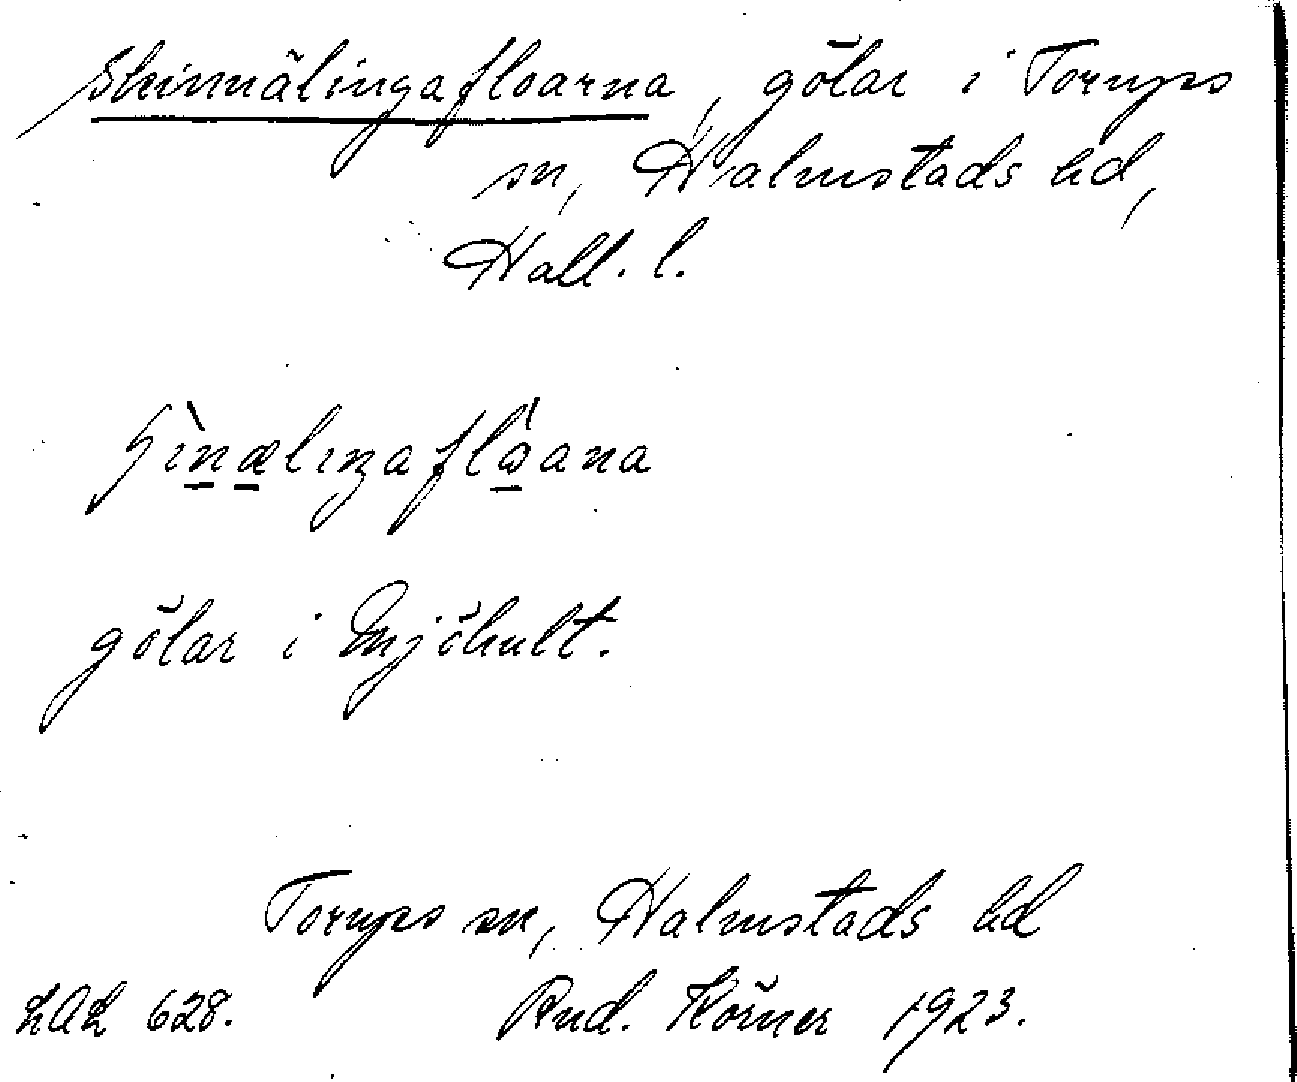 Skinnälingafloarna, gölar i Torups
sn, Halmstads hd,
Hall. l.
gölar i Mjöhult.
Torups sn, Halmstads hd
LAL 628. Rud. Körner 1923.